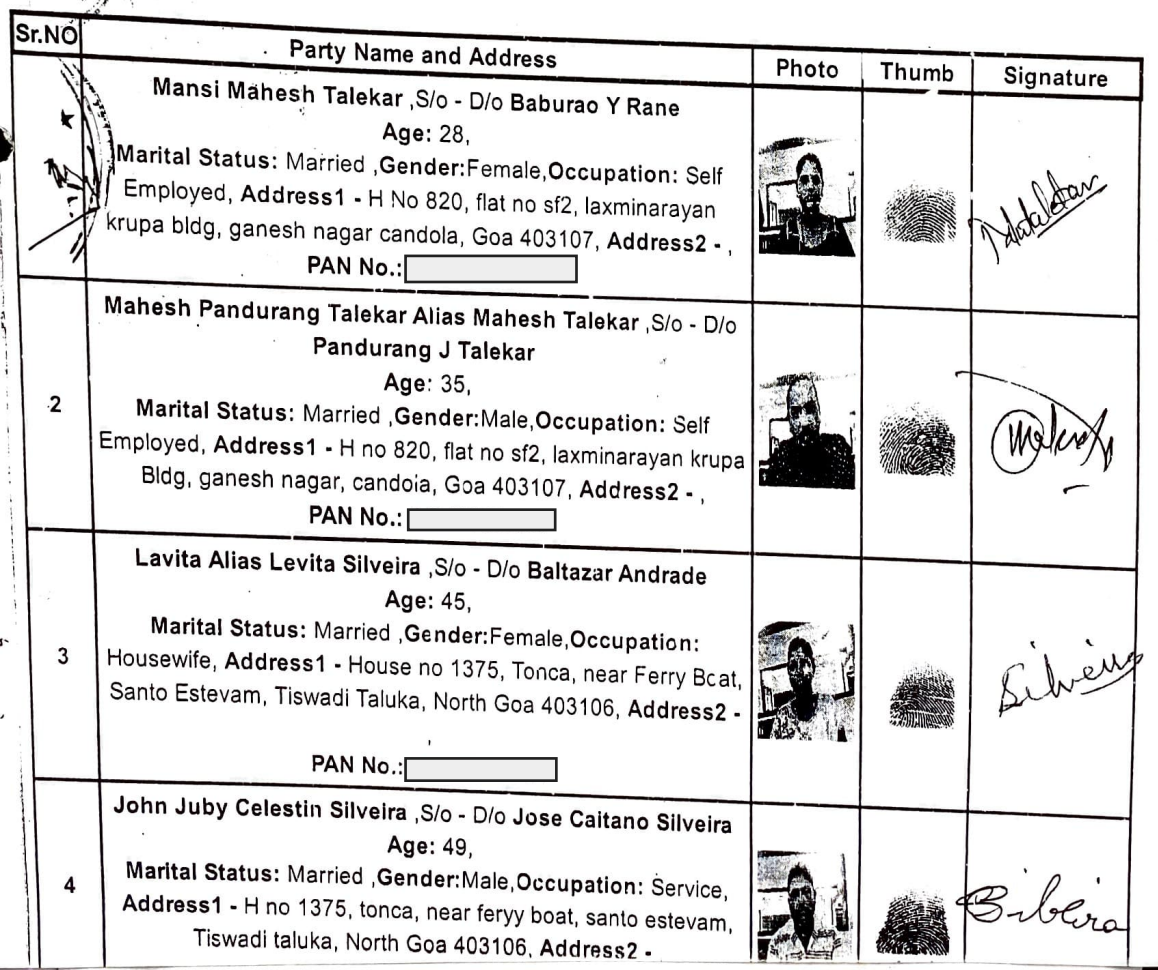 Sr.NO Party Name and Address Photo Thumb Signature
Mansi Mahesh Talekar ,S/o - D/o Baburao Y Rane
Age: 28,
Marital Status: Married ,Gender:Female,Occupation: Self
Employed, Address1 - H No 820, flat no sf2, laxminarayan
krupa bldg, ganesh nagar candola, Goa 403107, Address2 - ,
PAN No.:
Mahesh Pandurang Talekar Alias Mahesh Talekar ,S/o - D/o
Pandurang J Talekar
Age: 35,
2
Marital Status: Married ,Gender:Male,Occupation: Self
Employed, Address1 - H no 820, flat no sf2, laxminarayan krupa
Bldg, ganesh nagar, candola, Goa 403107, Address2 - ,
PAN No.:
Lavita Alias Levita Silveira ,S/o - D/o Baltazar Andrade
Age: 45,
Marital Status: Married ,Gender:Female,Occupation:
3
Housewife, Address1 - House no 1375, Tonca, near Ferry Boat,
Santo Estevam, Tiswadi Taluka, North Goa 403106, Address2 -
,
PAN No.:
Silveira
John Juby Celestin Silveira ,S/o - D/o Jose Caitano Silveira
Age: 49,
4
Marital Status: Married ,Gender:Male,Occupation: Service,
Address1 - H no 1375, tonca, near feryy boat, santo estevam,
Tiswadi taluka, North Goa 403106, Address2 -